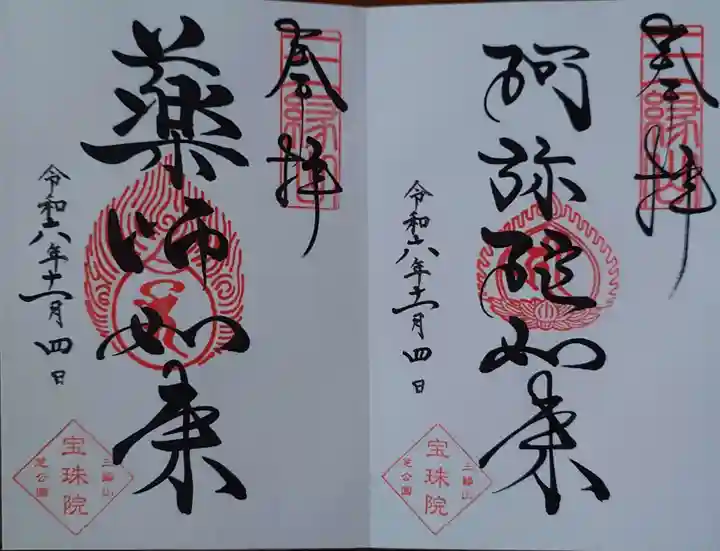 奉拝
三縁山
阿弥陀如来
令和六年十一月四日
三縁山
宝珠院
芝公園
奉拝
三縁山
薬師如来
令和六年十一月四日
三縁山
宝珠院
芝公園